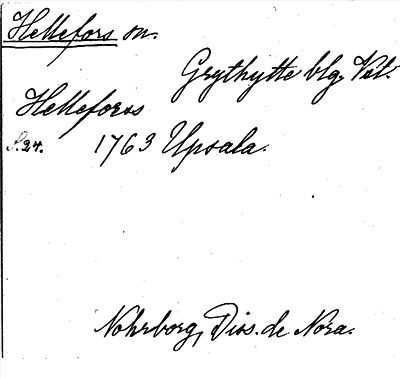 Hellefors sn.
Grythytte blg, Vstl.
Helleforss
S.24. 1763 Upsala.
Nohrborg, Diss. de Nora.